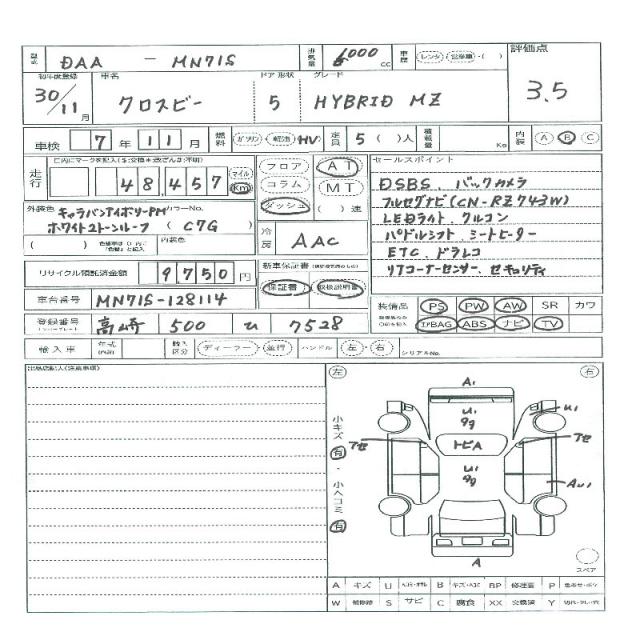 型式 DAA - MN71S 排気量 1000 cc 車歴 レンタ・営業車・( ) 評価点
3.5
初年度登録 車名 ドア 形状 グレード
30/11月 クロスビー 5 HYBRID MZ
車検 7年11月 燃料 ガソリン・軽油・HV 定員 5 ( )人 積載量 Kg 内装 A B C
走行 48,457 マイル Km
フロア AT
コラム MT
ダッシュ ( )速
セールスポイント
DSBS、バックカメラ
フルセグナビ(CN-RZ743W)
LEDライト、クルコン
パドルシフト、シートヒーター
ETC、ドラレコ
リアコーナーセンサー、セキュリティ
外装色 キャラバンアイボリーPM カラーNo.
ホワイト2トーンルーフ (C7G)
内装色
冷房 AAC
リサイクル預託済金額 9,750円
新車保証書
保証書 取扱説明書
車台番号 MN71S-128114
装備品 PS PW AW SR カワ
AIRBAG ABS ナビ TV
登録番号 高崎 500 い 7528
輸入車 年式 輸入区分 ディーラー・並行 ハンドル 左・右 シリアルNo.
出品店記入(注意事項)
左 右
A1
U1 U1
99
アセ トビA アセ
U1
99
AU1
A
小キズ 有・小ヘコミ 有
スペア
A キズ U B キズ・ BP 修理歴 P
W S サビ C 腐食 XX 交換済 Y